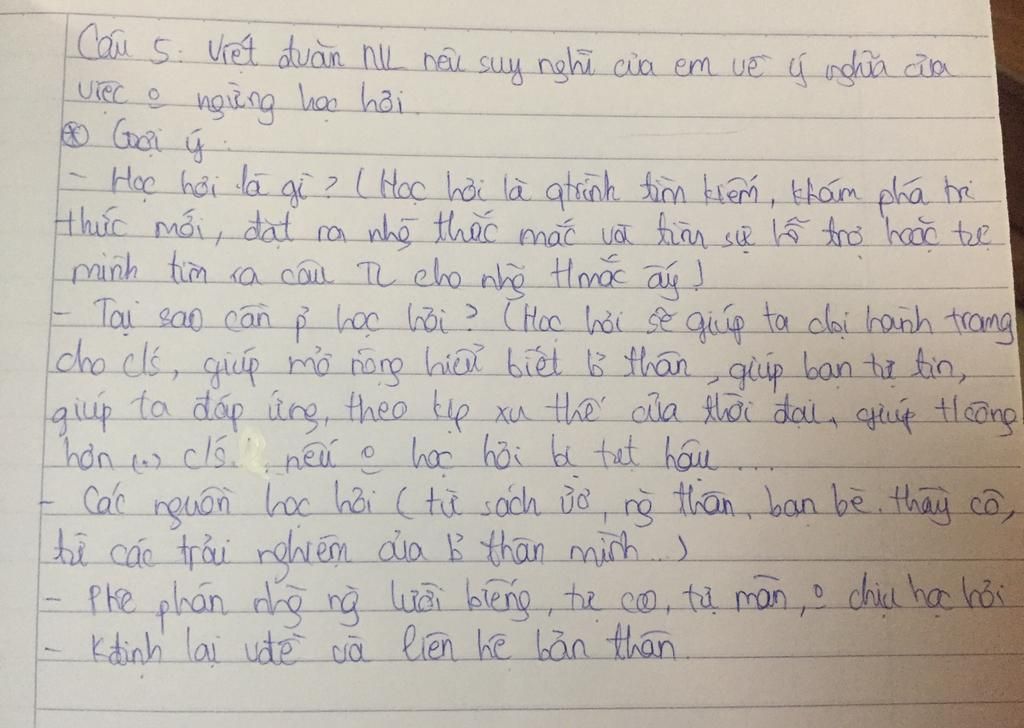 Câu 5: Viết đuàn NL nêu suy nghĩ của em về ý nghĩa của
việc o ngừng học hỏi.
⊛ Gợi ý:
- Học hỏi là gì? (Học hỏi là qtrình tìm kiếm, khám phá tri
thức mới, đặt ra nhg̃ thắc mắc và tìm sự hỗ trợ hoặc tự
mình tìm ra câu TL cho nhg̃ tmắc ấy)
- Tại sao cần p̉ học hỏi? (Học hỏi sẽ giúp ta có hành trang
cho c/s, giúp mở rộng hiểu biết b̉ thân, giúp bạn tự tin,
giúp ta đáp ứng, theo kịp xu thế của thời đại, giúp tcông
hơn (.) c/s. nếu o học hỏi bị tụt hậu ...
- Các nguồn học hỏi (từ sách vở, ng̀ thân, bạn bè, thầy cô,
từ các trải nghiệm của b̉ thân mình...)
- Phê phán nhg̃ ng̀ lười biếng, tự cao, tự mãn, o chịu học hỏi
- Kđịnh lại vđề và liên hệ bản thân.